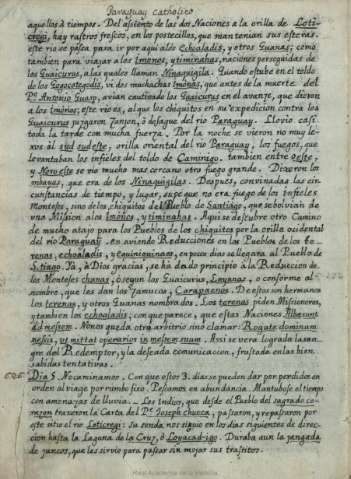 Paraguay Catholico
aquellos à tiempos. Del assiento de las dos Naciones a la orilla de Loti-
cregi, hay rastros frescos, en los postecillos, que mantenian sus esteras.
este rio se passa para ir por aqui alos Echoaladis, y otros Guanas; como
tambien para viajar a los Imonos, y timinahas, naciones perseguidas de
los Guaicurus, a las quales llaman Ninaquiguila. Quando estube en el toldo
de los Gogocotegodis, vi dos muchachas Imonas, que antes de la muerte del
Pe. Antonio Guasp, avian cautivado los Guaicurus en el avanze, que dieron
a los Imonos: este rio es, al que los chiquitos en su expedicion contra los
Guaicurus juzgaron Janjon, ò desague del rio Paraguay. Llovio casi
toda la tarde con mucha fuerza. Por la noche se vieron no muy le-
xos àl sud sudeste, orilla oriental del rio Paraguay, los fuegos, que
levantaban los infieles del toldo de Camingo. tambien entre oeste,
y Noroeste se vio mucho mas cercano otro fuego grande. Dixeron los
mbayas, que era de los Ninaquiguilas. Despues, convinadas las cir-
cunstancias de tiempo, y lugar, se supo no era fuego de los infieles
Monteses, sino de los chiquitos del Pueblo de Santiago, que se bolvian de
una Mission a los Imonos, y timinahas. Aqui se descubre otro Camino
de mucho atajo para los Pueblos de los chiquitos por la orilla occidental
del rio Paraguay. en aviendo Reducciones en los Pueblos de los te-
renas, echoaladis, y equiniquinas, en pocos dias se llegara al Pueblo de
S.tiago. Ya, à Dios gracias, se hà dado principio à la Reduccion de
los Monteses chanas, ò segun los Guaicurus, Layanas, o conforme al
nombre, que las dan los Zamucos, Carapaenos. De estos son hermanos
los terenas, y otros Guanas nombrados. Los terenas piden Missioneros,
y tambien los echoaladis, con que parece, que estas Naciones Albescunt
ad messem. No nos queda otro arbitrio sino clamar: Rogate dominum
messis, ut mittat operarios in messem suam. Assi se vera lograda la san-
gre del Redemptor, y la deseada comunicacion, frustada en las bien
sabidas tentativas.
Dia 5. No caminamos. Con que estos 3. dias se pueden dar por perdidos en
orden al viage por rumbo fixo. Pescamos en abundancia. Mantubose el tiempo
con amenazas de lluvia. Los Indios, que desde el Pueblo del sagrado co-
razon traxeron la Carta del Pe. Joseph chueca, passaron, y repassaron por
este sitio el rio Loticregi: Su senda nos siguio en los dias siguientes de direc-
cion hasta la Laguna de la Cruz, ò Loyacad-igo. Duraba aun la jangada
de juncos, que les sirvio para passar sin mojar sus trastitos.